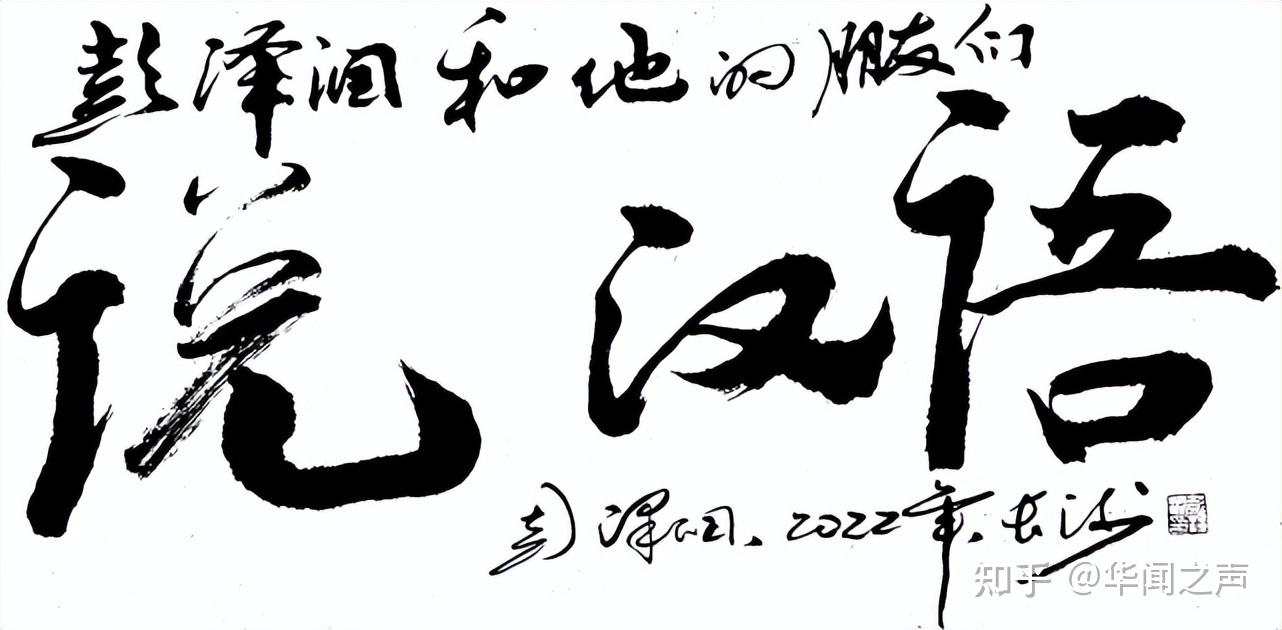 彭泽润和他的朋友们
说汉语
彭泽润、2022年、长沙
知乎 @华闻之声